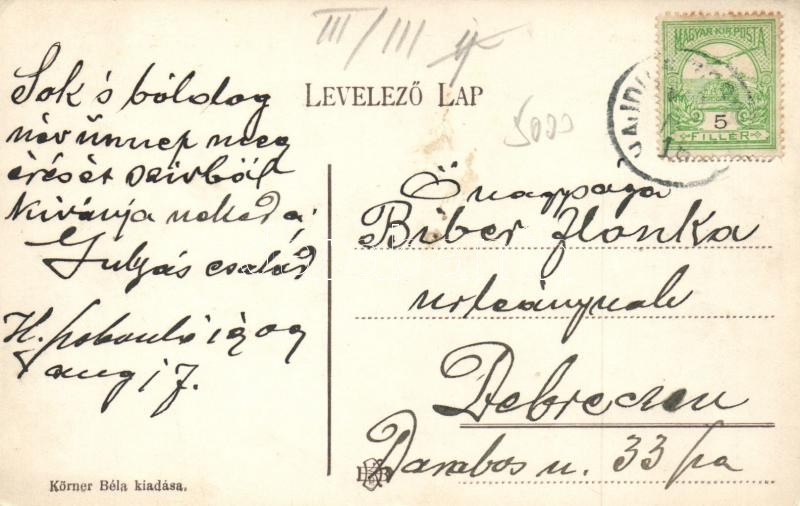 III/III
LEVELEZŐ LAP
5000
MAGYAR KIR. POSTA
5
FILLÉR
HAJDU
18
Sok s bóldog
név ünnep meg
érését szivből
kivánja neked a
Gulyás család
H. 1909
aug 17.
Önagysága
Biber Ilonka
urleánynak
Debreczen
Darabos u. 33 sza
Körner Béla kiadása.